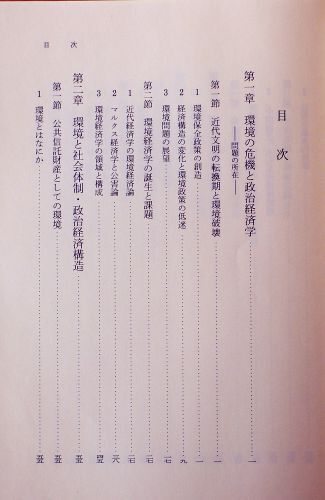 目次
目 次
第一章 環境の危機と政治経済学
――問題の所在――
第一節 近代文明の転換期と環境破壊
1 環境保全政策の創造
2 経済構造の変化と環境政策の低迷
3 環境問題の展望
第二節 環境経済学の誕生と課題
1 近代経済学の環境経済論
2 マルクス経済学と公害論
3 環境経済学の領域と構成
第二章 環境と社会体制・政治経済構造
第一節 公共信託財産としての環境
1 環境とはなにか